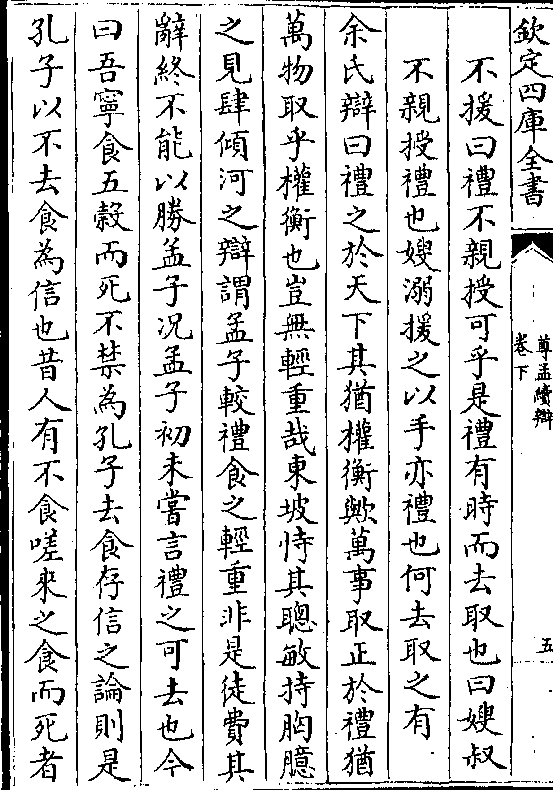 欽定四庫全書
尊孟續辯
卷下
五
不援曰禮不親授可乎是禮有時而去取也曰嫂叔
不親授禮也嫂溺援之以手亦禮也何去取之有
余氏辯曰禮之於天下其猶權衡歟萬事取正於禮猶
萬物取乎權衡也豈無輕重哉東坡恃其聰敏持胸臆
之見肆傾河之辯謂孟子較禮食之輕重非是徒費其
辭終不能以勝孟子况孟子初未嘗言禮之可去也今
曰吾寧食五榖而死不禁為孔子去食存信之論則是
孔子以不去食為信也昔人有不食嗟來之食而死者